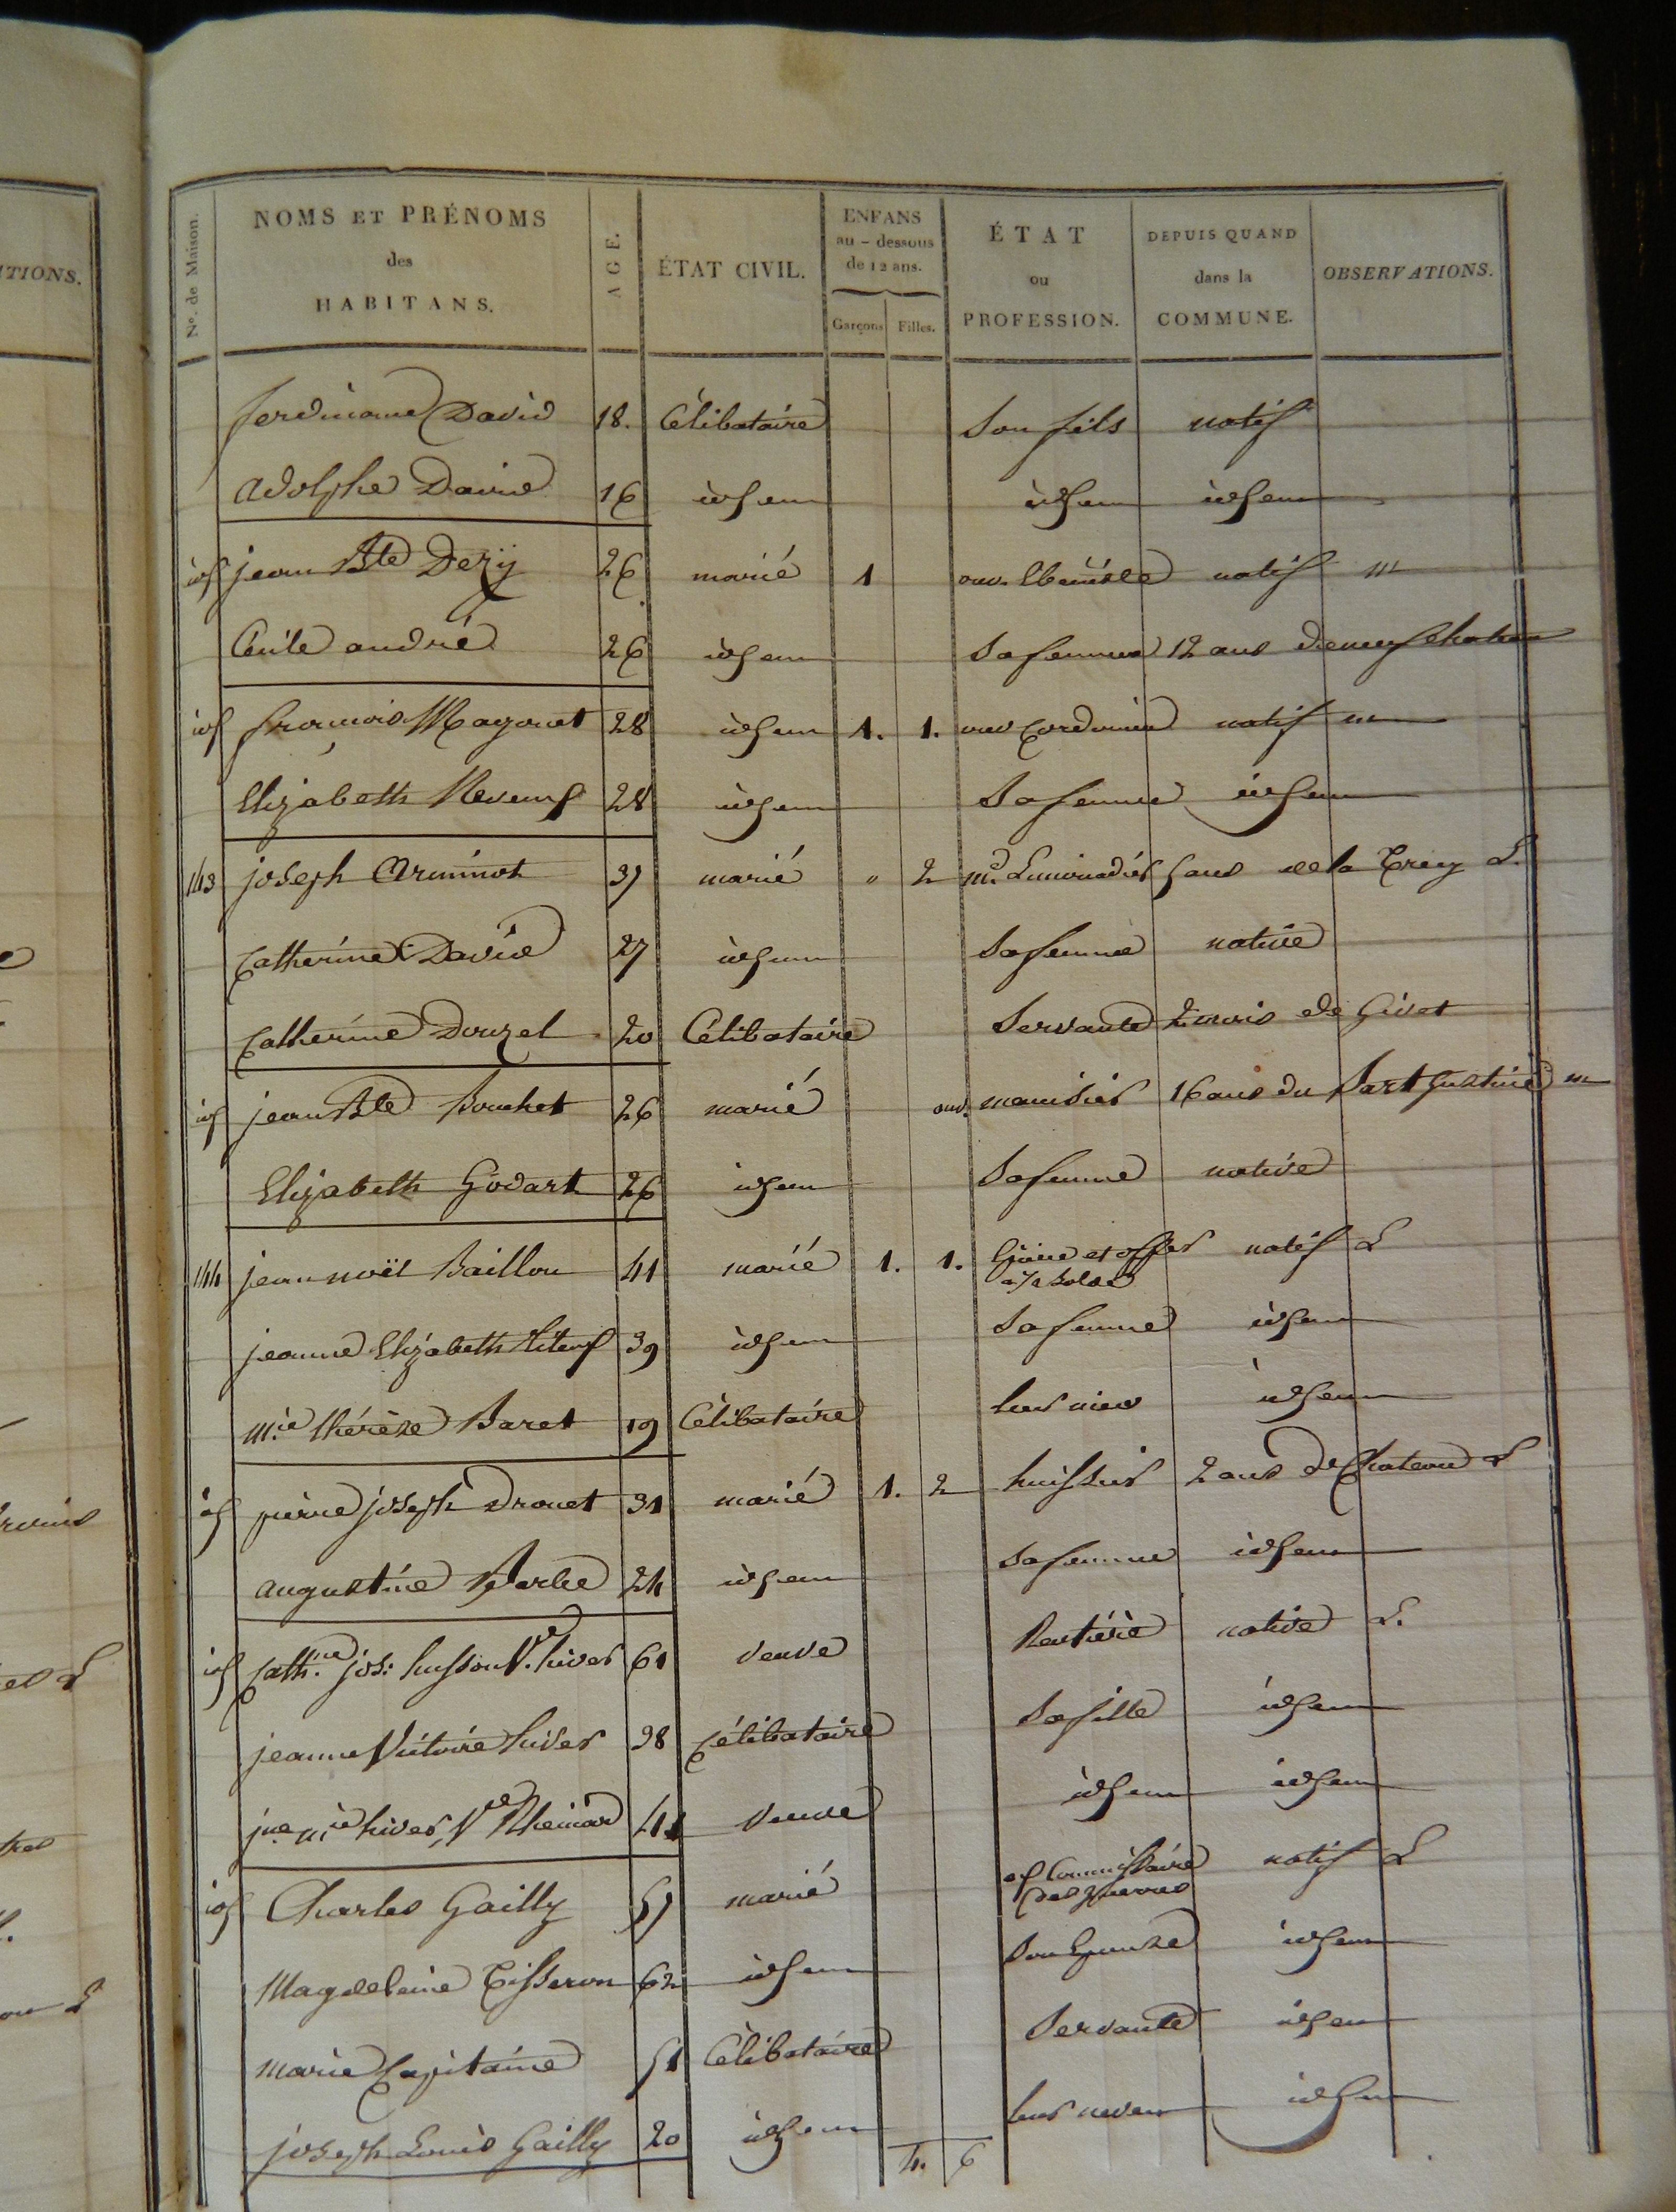 ITIONS.
N°. de Maison.
NOMS ET PRÉNOMS
des
HABITANS.
AGE.
ÉTAT CIVIL.
ENFANS
au-dessous
de 12 ans.
Garçons Filles.
ÉTAT
ou
PROFESSION.
DEPUIS QUAND
dans la
COMMUNE.
OBSERVATIONS.
ferdinand David 18. Célibataire Son fils natif
adolphe David 16 idem idem idem
id jean Bte Dezÿ 26 marié 1 ouv. Ebeniste natif m
Cécile andré 26 idem Sa femme 12 ans de neufchateau
id françois Magonet 28 idem 1. 1. ouv Cordonnier natif m
Elizabeth 28 idem Sa femme idem
143 joseph Arminot 37 marié " 2 md. Limonadier 5 ans de L.
Catherine David 27 idem Sa femme native
Catherine Douzel 20 Célibataire Servante 2 mois de Givet
id jean Bte Bouchet 26 marié ouv. menuisier 16 ans du m
Elizabeth Godart 26 idem Sa femme native
144 jean noël Baillou 41 marié 1. 1. et offer natif L
a ½ Solde
jeanne Elizabeth 39 idem Sa femme idem
mie thérèse Baret 19 Célibataire leur niece idem
id pierre joseph Drouet 31 marié 1. 2 huissier 2 ans de Chateau L
augustine 24 idem Sa femme idem
id Cathne jos: husson Ve. hiver 61 veuve Rentière native L.
jeanne Victoire hiver 38 Célibataire Sa fille idem
jne mie hiver, Ve 41 veuve idem idem
id Charles Gailly 57 marié ex Commissaire natif L
des guerres
Magdelaine Tisseron 62 idem Son Epouse idem
marie Capitaine 51 Célibataire Servante idem
joseph Louis Gailly 20 idem leur neveu idem
4. 6